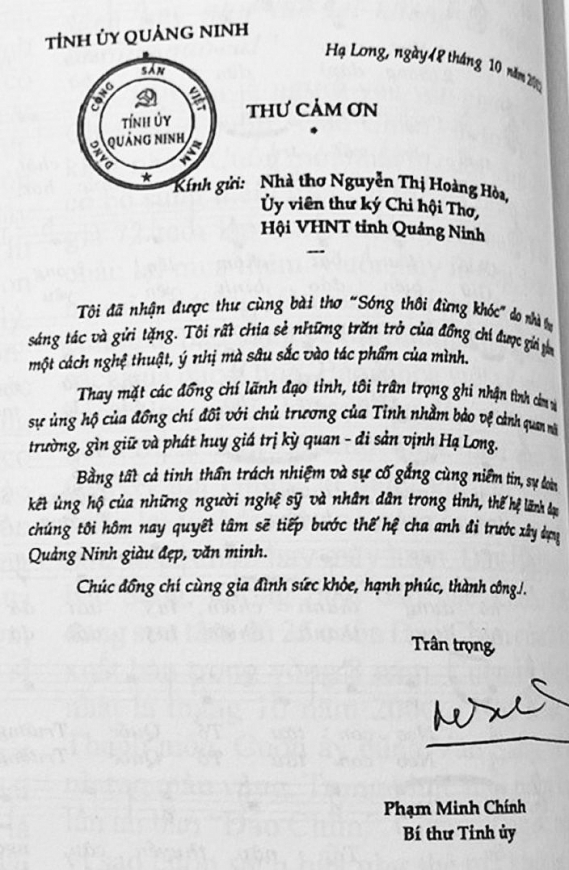 TỈNH ỦY QUẢNG NINH
Hạ Long, ngày 18 tháng 10 năm
ĐẢNG CỘNG SẢN VIỆT NAM
TỈNH ỦY
QUẢNG NINH
THƯ CẢM ƠN
*
Kính gửi: Nhà thơ Nguyễn Thị Hoàng Hòa,
Ủy viên thư ký Chi hội Thơ,
Hội VHNT tỉnh Quảng Ninh
Tôi đã nhận được thư cùng bài thơ “Sóng thôi đừng khóc” do nhà thơ
sáng tác và gửi tặng. Tôi rất chia sẻ những trăn trở của đồng chí được gửi gắm
một cách nghệ thuật, ý nhị mà sâu sắc vào tác phẩm của mình.
Thay mặt các đồng chí lãnh đạo tỉnh, tôi trân trọng ghi nhận tình cảm và
sự ủng hộ của đồng chí đối với chủ trương của Tỉnh nhằm bảo vệ cảnh quan môi
trường, gìn giữ và phát huy giá trị kỳ quan - di sản vịnh Hạ Long.
Bằng tất cả tinh thần trách nhiệm và sự cố gắng cùng niềm tin, sự đoàn
kết ủng hộ của những người nghệ sỹ và nhân dân trong tỉnh, thế hệ lãnh đạo
chúng tôi hôm nay quyết tâm sẽ tiếp bước thế hệ cha anh đi trước xây dựng
Quảng Ninh giàu đẹp, văn minh.
Chúc đồng chí cùng gia đình sức khỏe, hạnh phúc, thành công./.
Trân trọng,
Phạm Minh Chính
Bí thư Tỉnh ủy